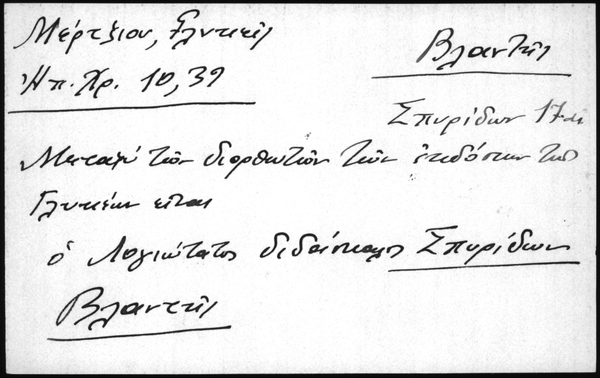 Μέρτζιου, Γλυκεῖς
Βλαντῆς
Ἠπ. Χρ. 10, 39
Σπυρίδων 17 αἰ
Μεταξὺ τῶν διορθωτῶν τῶν ἐκδόσεων τῶν
Γλυκέων εἶναι
ὁ λογιώτατος διδάσκαλος Σπυρίδων
Βλαντῆς